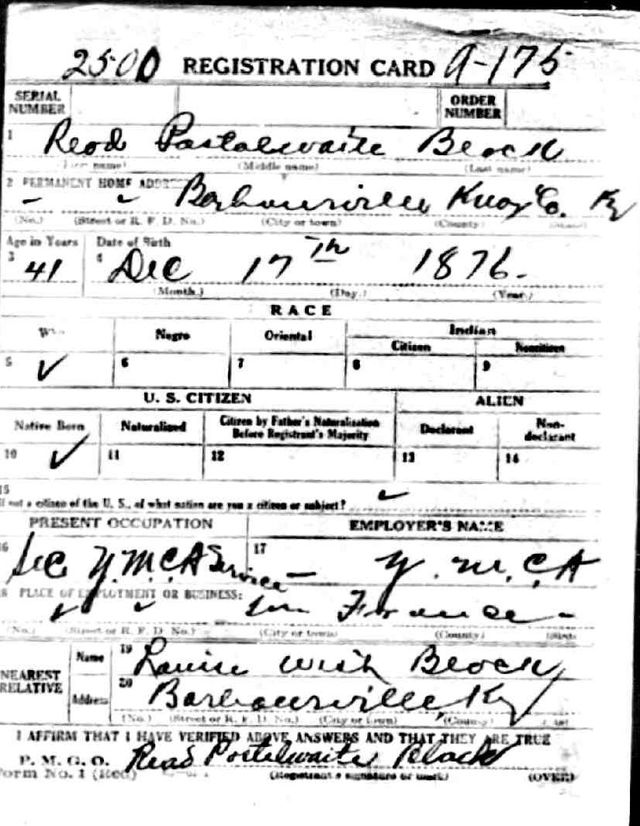 2500 REGISTRATION CARD A-175
SERIAL NUMBER ORDER NUMBER
1 Read Postelwaite Black
(First name) (Middle name) (Last name)
2 PERMANENT HOME ADDRESS: Barbourville Knox Co. Ky
(No.) (Street or R. F. D. No.) (City or town) (County) (State)
Age in Years Date of Birth
3 41 4 Dec 17th 1876.
(Month.) (Day.) (Year.)
RACE
White Negro Oriental Indian
Citizen Noncitizen
5 ✓ 6 7 8 9
U. S. CITIZEN ALIEN
Native Born Naturalized Citizen by Father's Naturalization Before Registrant's Majority Declarant Non-declarant
10 ✓ 11 12 13 14
15
If not a citizen of the U. S., of what nation are you a citizen or subject? ✓
PRESENT OCCUPATION EMPLOYER'S NAME
16 Sec Y.M.C.A Service 17 Y.M.C.A
18 PLACE OF EMPLOYMENT OR BUSINESS:
✓ ✓ in France
(No.) (Street or R. F. D. No.) (City or town) (County) (State)
NEAREST RELATIVE Name 19 Louise Black
Address 20 Barbourville, Ky
(No.) (Street or R. F. D. No.) (City or town) (County) (State)
I AFFIRM THAT I HAVE VERIFIED ABOVE ANSWERS AND THAT THEY ARE TRUE
P. M. G. O. Read Postelwaite Black
Form No. 1 (Red) (Registrant's signature or mark) (OVER)